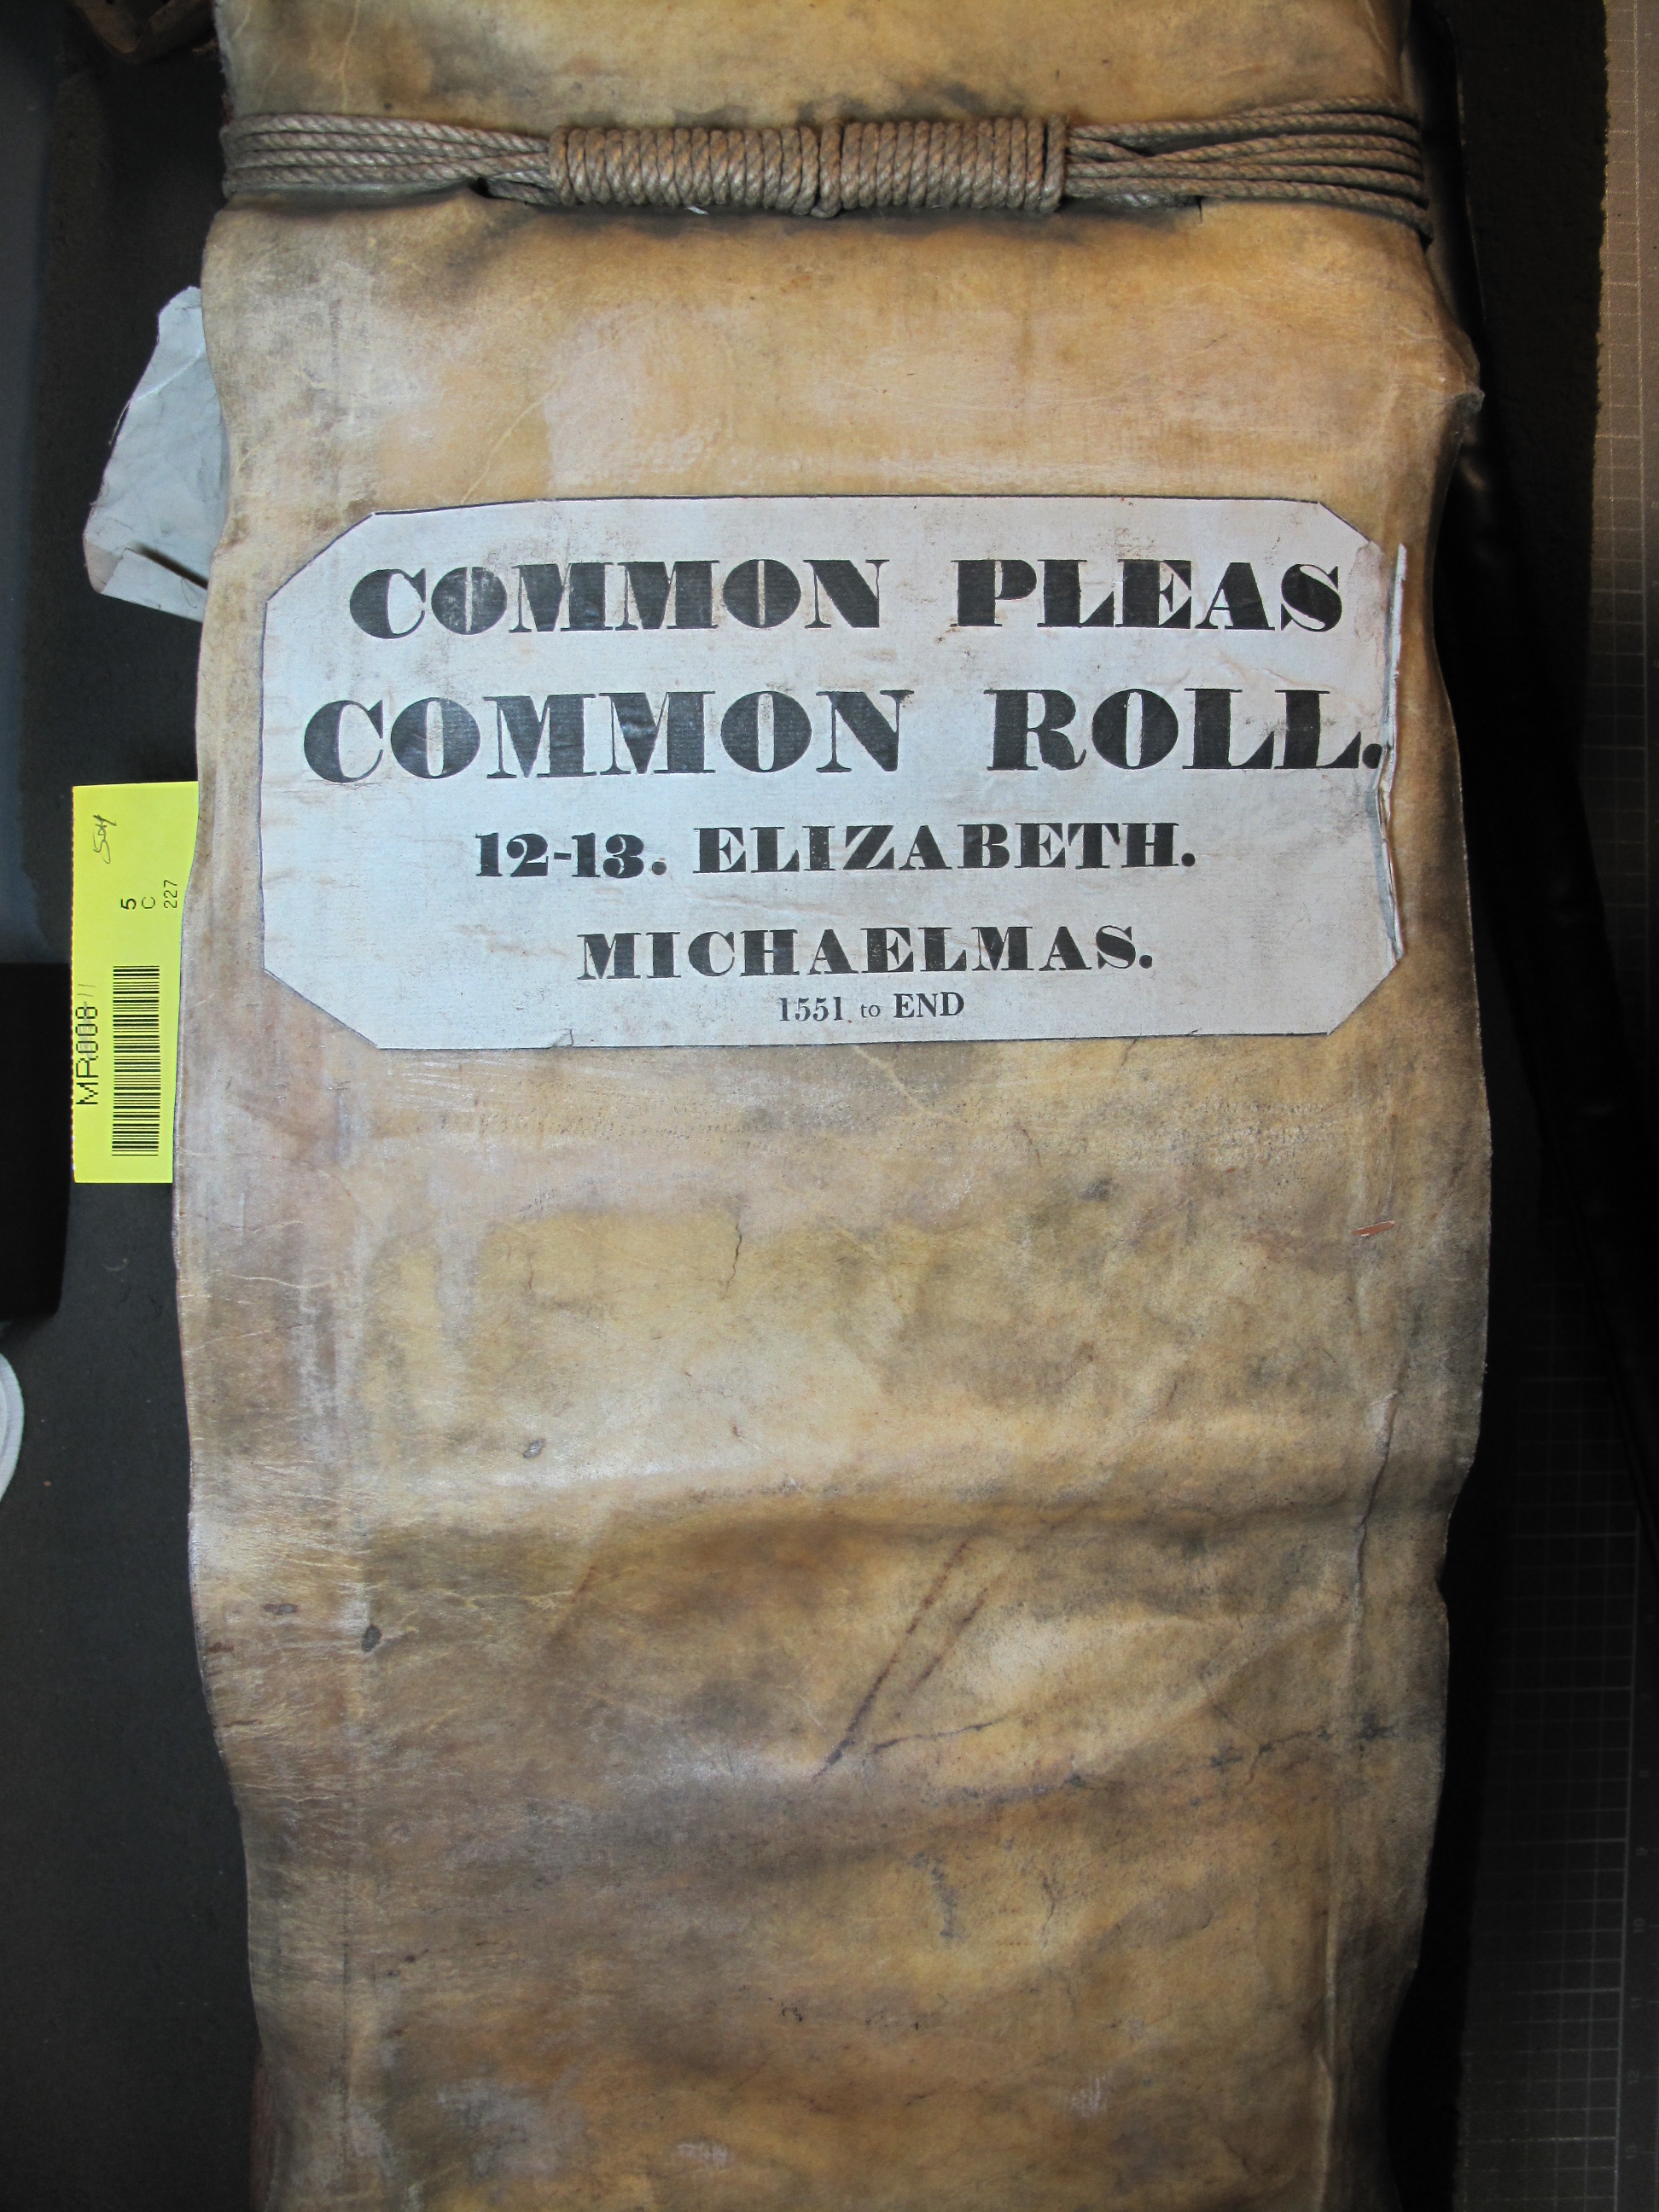 COMMON PLEAS
COMMON ROLL.
12-13. ELIZABETH.
MICHAELMAS.
1551 to END
5
C
227